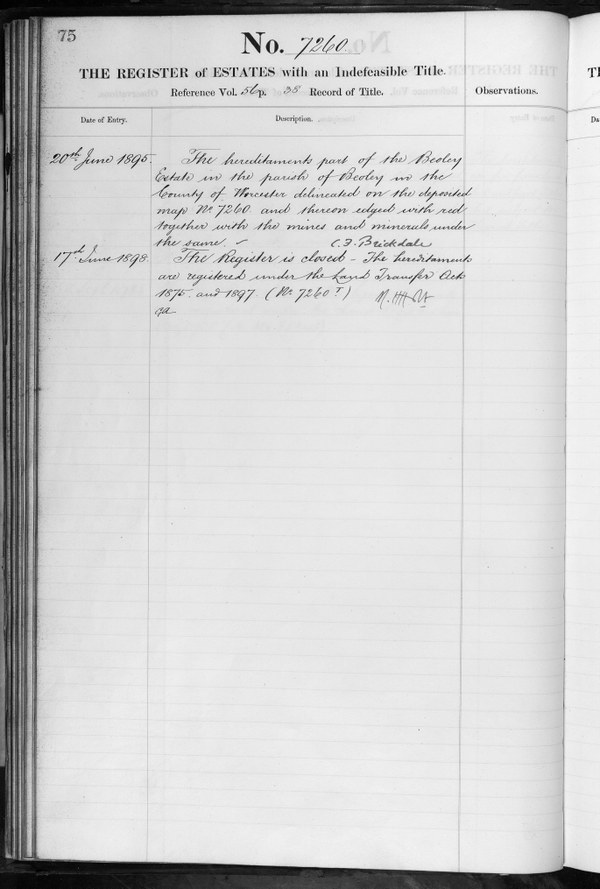 75
No. 7260
THE REGISTER of ESTATES with an Indefeasible Title.
Reference Vol. 56 p. 38 Record of Title.
Observations.
Date of Entry.
Description.
20th June 1895.
The hereditaments part of the Beoley
Estate in the parish of Beoley in the
County of Worcester delineated on the deposited
map No 7260 and thereon edged with red
together with the mines and minerals under
the same. — C. F. Brickdale
17th June 1898.
The Register is closed – The hereditaments
are registered under the Land Transfer Acts
1875 and 1897 (No 7260 T)